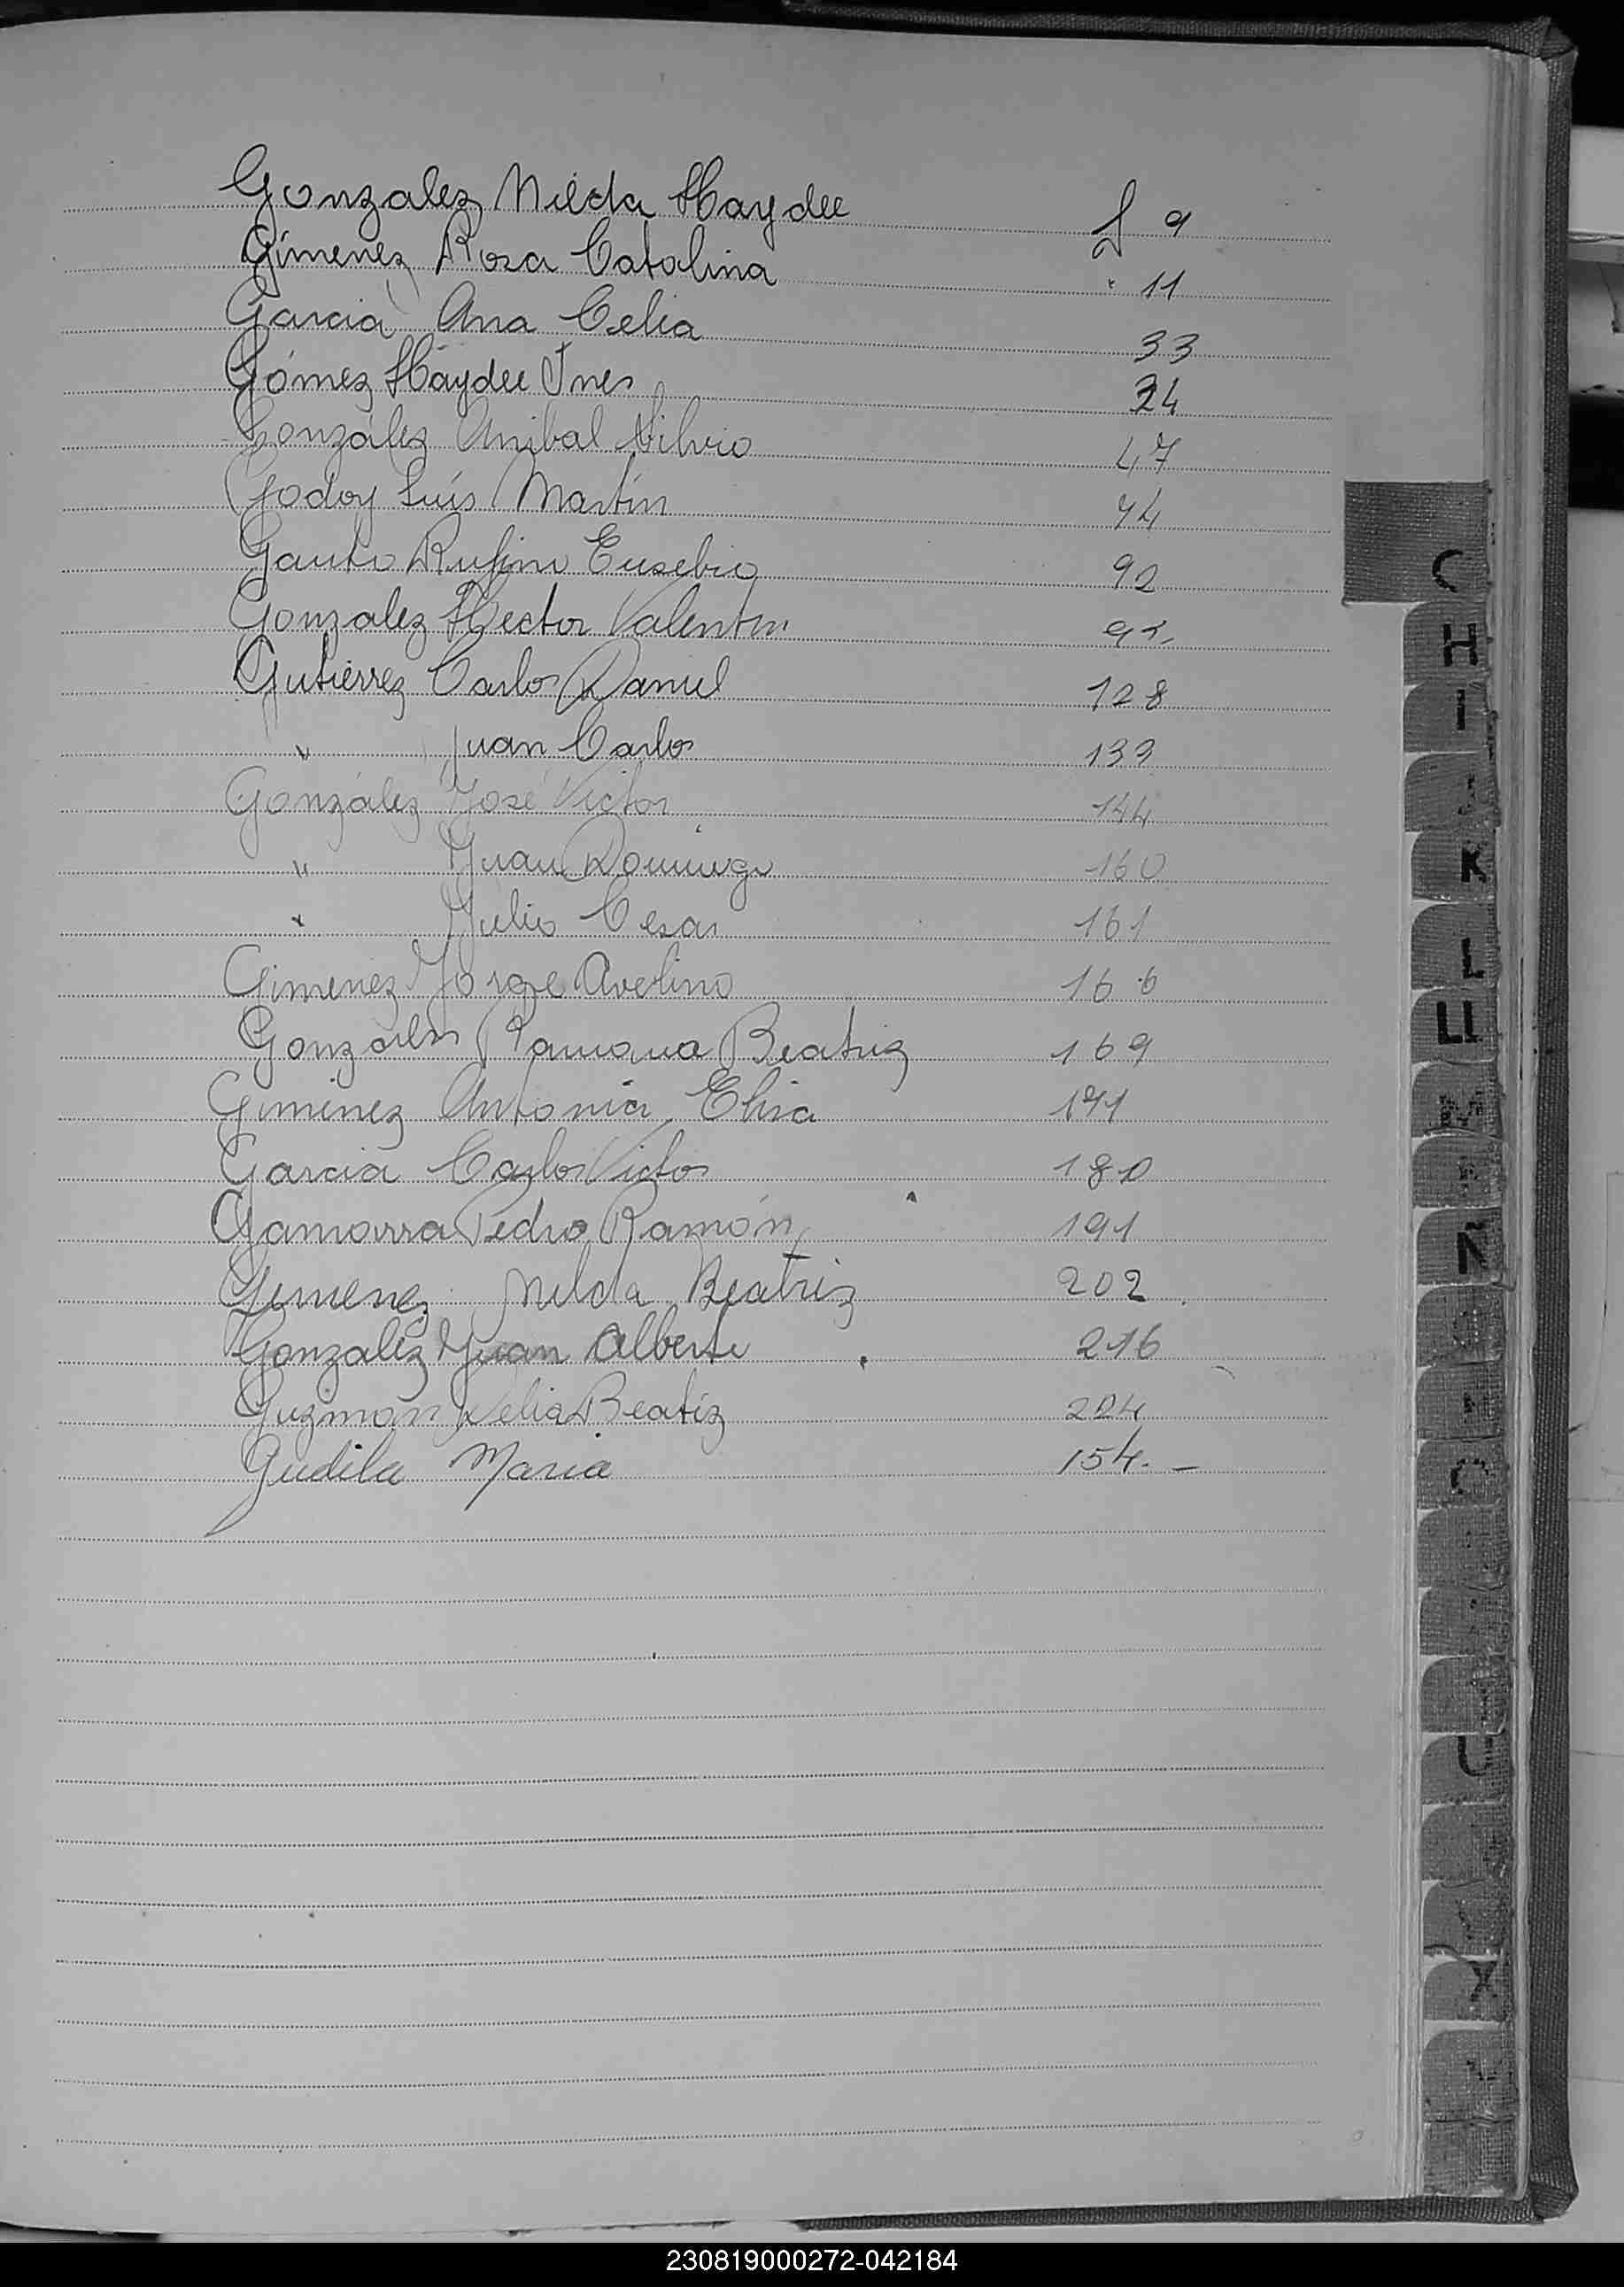 Gonzalez Nilda Haydee f 9
Gimenez Rosa Catalina " 11
Garcia Ana Celia 33
Gómez Haydee Ines 34
Gonzáles Anibal Silvio 47
Godoy Luis Martín 74
Gauto Rufino Eusebio 92
Gonzalez Hector Valentin
Gutiérrez Carlos Daniel 128
" Juan Carlos 133
González José Victor 144
" Juan Domingo 160
" Julio Cesar 161
Gimenez Jorge Avelino 166
Gonzales Ramona Beatriz 169
Gimenez Antonia Elisa 171
Garcia Carlos Victor 180
Gamarra Pedro Ramón 191
Gimenez Nilda Beatriz 202
Gonzalez Juan Alberto 216
Guzmán Delia Beatiz 224
Gudila Maria 154.-
C
H
I
K
L
LL
Ñ
U
X
230819000272-042184